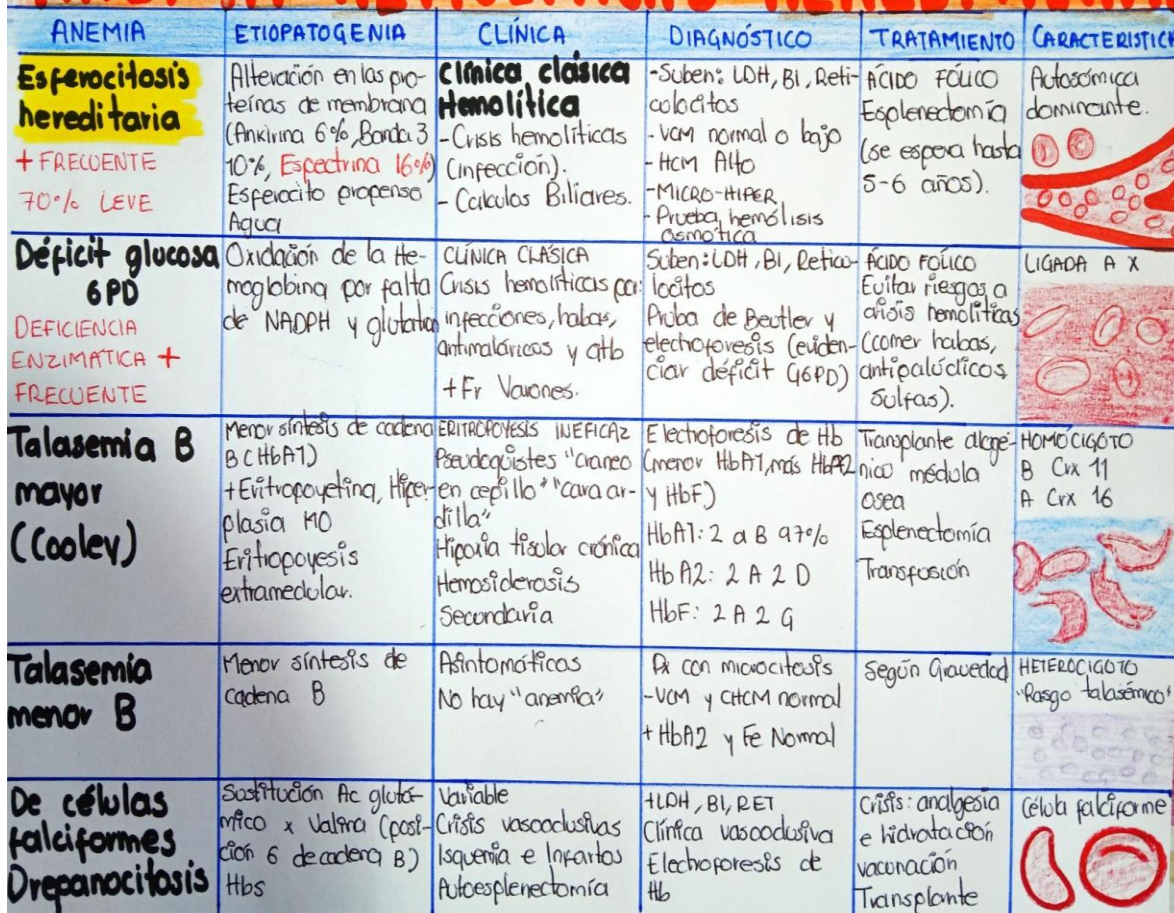 ANEMIA
ETIOPATOGENIA
CLÍNICA
DIAGNÓSTICO
TRATAMIENTO
Esferocitosis
hereditaria
+ FRECUENTE
70% LEVE
Alteración en las pro-
teínas de membrana
(Ankirina 6%, Banda 3
10%, Espectrina 16%)
Esferocito propenso
Agua
Clínica clásica
Hemolítica
- Crisis hemolíticas
(infección).
- Calculos Biliares.
-Suben: LDH, BI, Reti-
culocitos
- VCM normal o bajo
- HCM Alto
-MICRO-HIPER
- Prueba hemólisis
osmótica
ÁCIDO FÓLICO
Esplenectomía
(se espera hasta
5-6 años).
Autosómica
dominante.
Déficit glucosa
6PD
DEFICIENCIA
ENZIMATICA +
FRECUENTE
Oxidación de la He-
moglobina por falta
de NADPH y glutation
CLÍNICA CLÁSICA
Crisis hemolíticas por
infecciones, habas,
antimaláricos y atb
+ Fr Varones.
Suben: LDH, BI, Reticu-
locitos
Pruba de Beutler y
electroforesis (eviden-
ciar déficit G6PD)
ÁCIDO FÓLICO
Evitar riesgos a
crisis hemolíticas
(comer habas,
antipalúdicos,
Sulfas).
LIGADA A X
Talasemia B
mayor
(Cooley)
Menor síntesis de cadena
B (HbA1)
+Eritropoyetina, Hiper-
plasia MO
Eritropoyesis
extramedular.
ERITROPOYESIS INEFICAZ
Pseudoquistes "craneo
en cepillo" "cara ar-
dilla"
Hipoxia tisular crónica
Hemosiderosis
Secundaria
Electroforesis de Hb
(menor HbA1, más HbA2
y HbF)
HbA1: 2 a B 97%
HbA2: 2 A 2 D
HbF: 2 A 2 G
Transplante alogé-
nico médula
osea
Esplenectomía
Transfusión
HOMOCIGOTO
B Crx 11
A Crx 16
Talasemia
menor B
Menor síntesis de
cadena B
Asintomáticas
No hay "anemia"
Dx con microcitosis
-VCM y CHCM normal
+ HbA2 y Fe Normal
Según Gravedad
HETEROCIGOTO
"Rasgo talasémico"
De células
falciformes
Drepanocitosis
Sustitución Ac glutá-
mico x Valina (posi-
ción 6 de cadena B)
Hbs
Variable
Crisis vasooclusivas
Isquemia e Infartos
Autoesplenectomía
+LDH, BI, RET
Clínica vasooclusiva
Electroforesis de
Hb
Crisis: analgesia
e hidratación
vacunación
Transplante
Célula falciforme